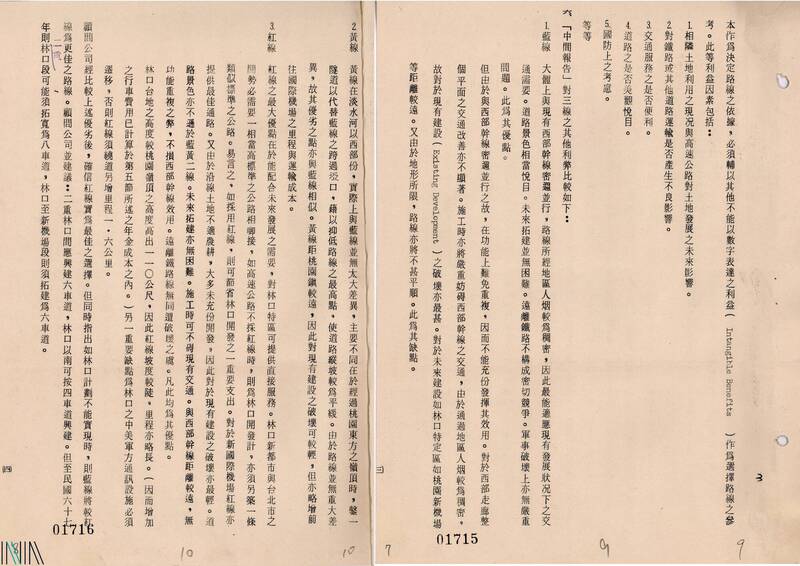 本作為決定路線之依據，必須輔以其他不能以數字表達之利益（Intangible Benefits）作為選擇路線之參
考。此等利益因素包括：
1.相隣土地利用之現況與高速公路對土地發展之未來影響。
2.對鐵路或其他道路運輸是否產生不良影響。
3.交通服務之是否便利。
4.道路之是否美觀悅目。
5.國防上之考慮。
等等
六、「中間報告」對三線之其他利弊比較如下：
1.藍線 大體上與現有西部幹線密邇並行，路線所經地區人烟較為稠密，因此最能適應現有發展狀況下之交
通需要。道路景色相當悅目。未來拓建並無困難。遠離鐵路不構成密切競爭。軍事破壞上亦無嚴重
問題。此為其優點。
但由於與西部幹線密邇並行之故，在功能上難免重複，因而不能充份發揮其效用。對於西部走廊整
個平面之交通改善亦不顯著。施工時亦將嚴重妨碍西部幹線之交通，由於通過地區人烟較為稠密，
故對於現有建設（Existing Development）之破壞亦最甚。對於未來建設如林口特定區如桃園新機場
等距離較遠。又由於地形所限，路線亦將不甚平順。此為其缺點。
三
01715
3
9
9
7
2.黃線 黃線在淡水河以西部份，實際上與藍線並無太大差異，主要不同在於經過桃園東方之嶺頂時，鑿一
隧道以代替藍線之跨過埡口，藉以抑低路線之最高點，使道路縱坡較為平緩。由於路線並無重大差
異，故其優劣之點亦與藍線相似。黃線距桃園鎮較遠，因此對現有建設之破壞可較輕，但亦略增前
往國際機場之里程與運輸成本。
3.紅線 紅線之最大優點在於能配合未來發展之需要，對林口特區可提供直接服務。林口新都市與台北市之
間勢必需要一相當高標準之公路相啣接，如高速公路不採紅線時，則為林口開發計，亦須另築一條
類似標準之公路。易言之，如採用紅線，則可節省林口開發之一重要支出。對於新國際機場紅線亦
提供最佳通路。又由於沿線土地不適農耕，大多未充份開發，因此對於現有建設之破壞亦最輕。道
路景色亦不遜於藍黃二線。未來拓建亦無困難。施工時可不碍現有交通。與西部幹線距離較遠，無
功能重複之弊，不損西部幹線效用。遠離鐵路線無同遭破壞之處。凡此均為其優點。
林口台地之高度較桃園嶺頂之高度高出一一○公尺，因此紅線坡度較陡，里程亦略長。（因而增加
之行車費用已計算於第五節所述之年金成本之內。）另一重要缺點為林口之中美軍方通訊設施必須
遷移，否則紅線須繞道另增里程一・六公里。
顧問公司經比較上述優劣後，確信紅線實為最佳之選擇。但同時指出如林口計劃不能實現時，則藍線將較紅
線為更佳之路線。顧問公司並建議：二重林口間應興建六車道，林口以南可按四車道興建。但至民國六十七
年則林口段可能須拓寬為八車道，林口至新機場段則須拓建為六車道。
四
01716
10
10